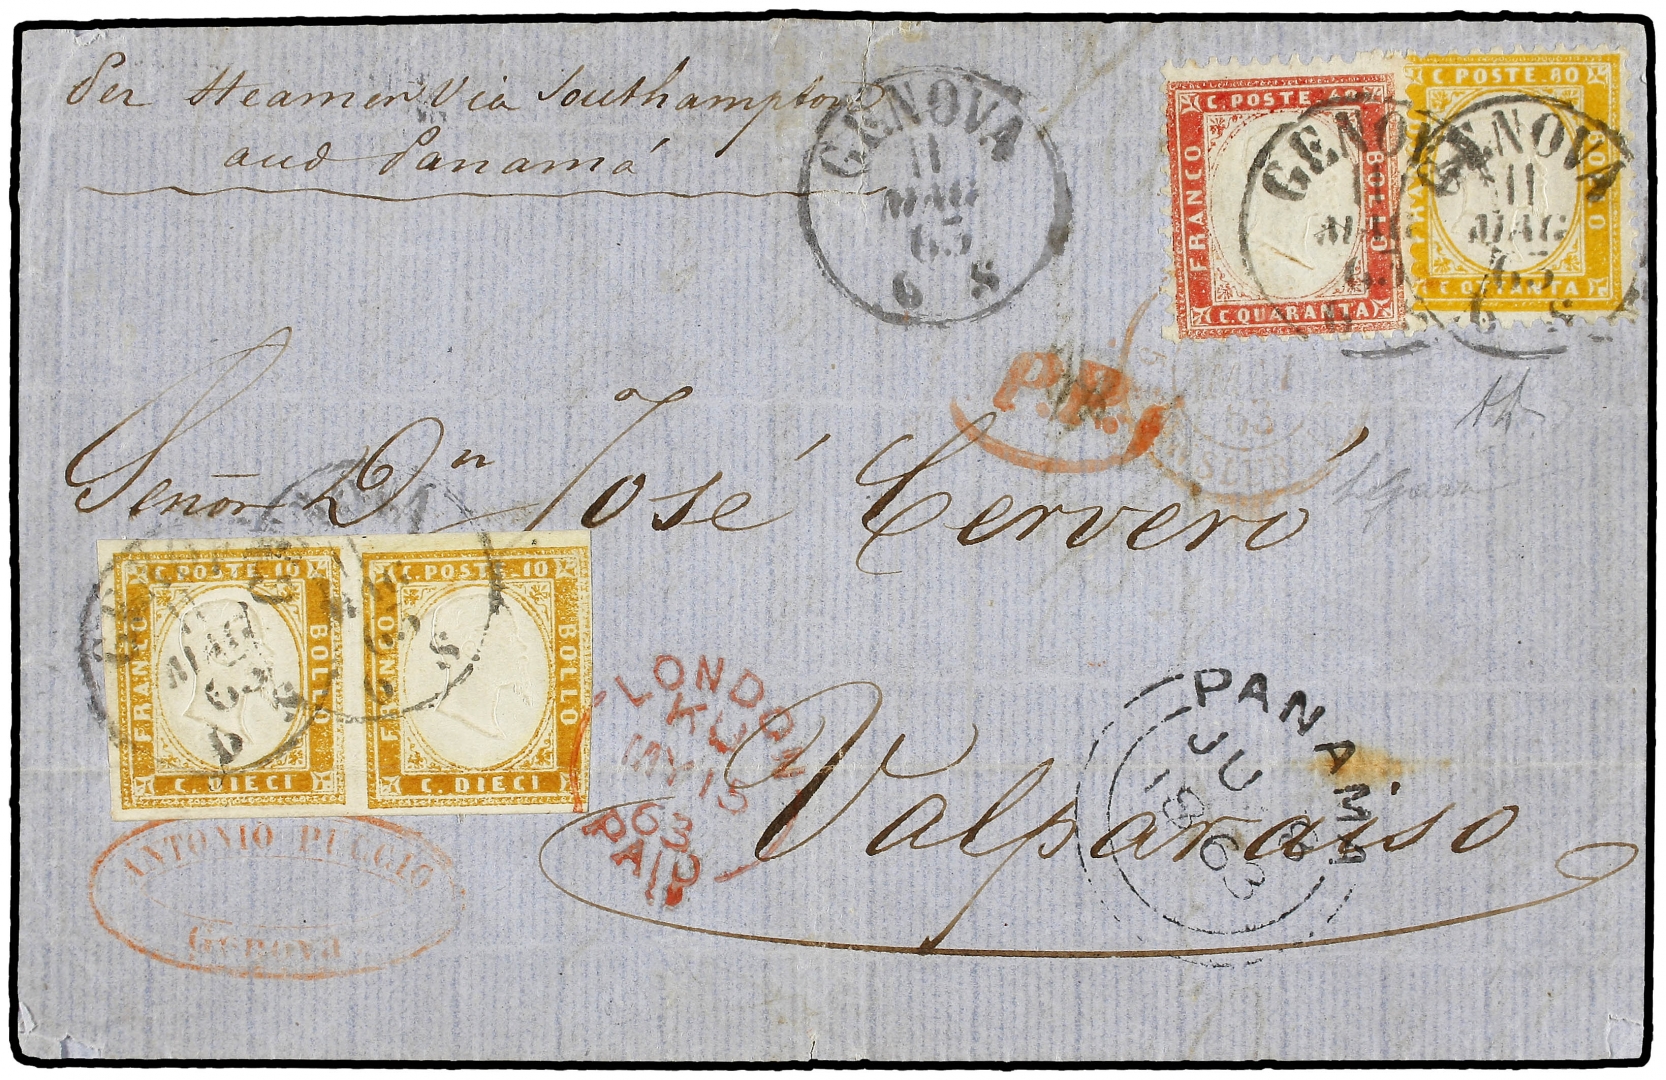 Per Steamer Via Southampton
and Panamá
GENOVA
11
MAG
63
6 S
C. POSTE. 40
FRANCO
BOLLO
C. QUARANTA
GENOVA
MAG
63
C. POSTE. 80
C. OTTANTA
GENOVA
11
MAG
63
P.P.
63
Señor Dn José Cerveró
C. POSTE 10
FRANCO
BOLLO
C. DIECI
MAG
63
C. POSTE. 10
FRANCO
BOLLO
C. DIECI
63
6 S
LONDON
MY 15
63
PAID
PANAMA
JU
1863
Valparaiso
ANTONIO PUGGIO
Genova